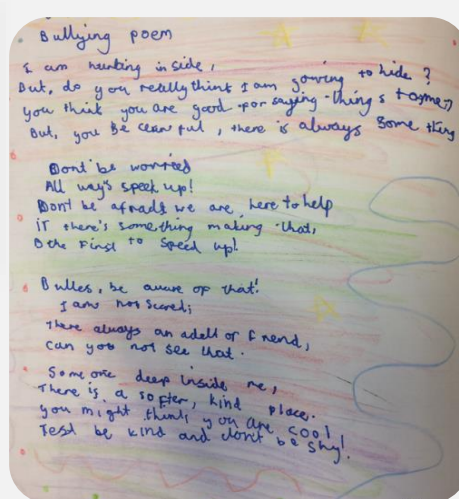 Bullying poem
I am hurting inside,
But, do you really think I am gowing to hide?
you think you are good for saying things to me,
But, you Be cearful, there is always some thing
Dont be worried
All way's speek up!
Don't be afraids we are here to help
if there's something making that,
B the First to speed up!
Bulles, be aware of that!
I am not scared;
there always an adell or friend,
can you not see that.
Some one deep inside me,
There is a softer, kind place.
you might think you are cool!
Jest be kind and don't be shy!